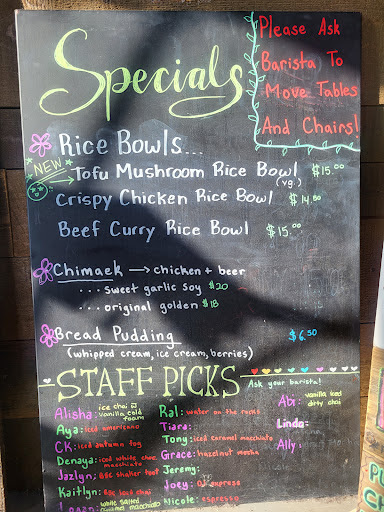 Specials
Please Ask
Barista To
Move Tables
And Chairs!
Rice Bowls...
NEW
Tofu Mushroom Rice Bowl $15.00
(vg.)
Crispy Chicken Rice Bowl $14.50
Beef Curry Rice Bowl $15.00
Chimaek → chicken + beer
... sweet garlic soy $20
... original golden $18
Bread Pudding $6.50
(whipped cream, ice cream, berries)
STAFF PICKS
Ask your barista!
Alisha: ice chai
vanilla cold
foam
Aya: iced americano
CK: iced autumn fog
Denaya: iced white choc
macchiato
Jazlyn:
Kaitlyn: iced chai
white salted
caramel macchiato
Ral: water on the rocks
Tiara:
Tony: iced caramel macchiato
Grace: hazelnut mocha
Jeremy:
Joey: espresso
Nicole: espresso
Abi: vanilla iced
dirty chai
Linda:
Ally: